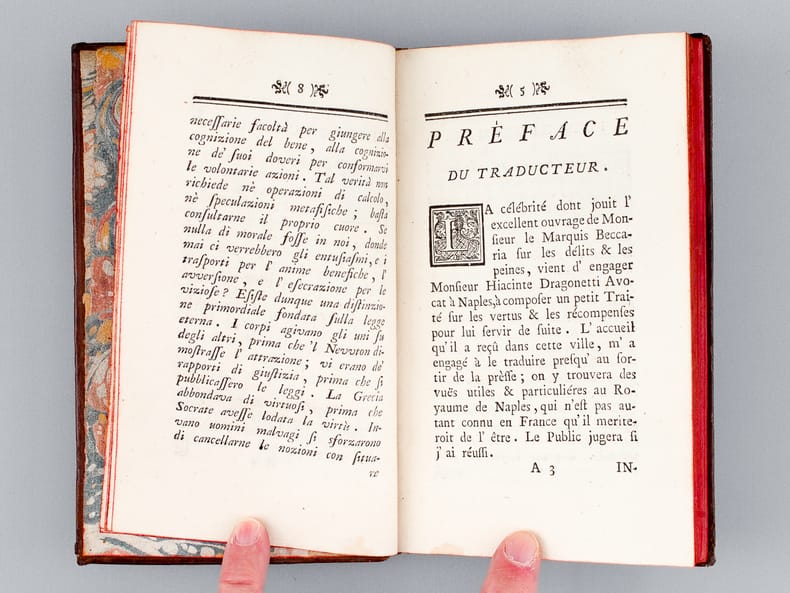 8
neceſſarie facoltà per giungere alla
cognizione del bene, alla cognizio-
ne de' ſuoi doveri per conformarvi
le volontarie azioni. Tal verità non
richiede nè operazioni di calcolo,
nè ſpeculazioni metafiſiche; baſta
conſultarne il proprio cuore. Se
nulla di morale foſſe in noi, donde
mai ci verrebbero gli entuſiaſmi, e i
traſporti per l' anime benefiche, l'
avverſione, e l' eſecrazione per le
vizioſe? Eſiſte dunque una diſtinzio-
ne primordiale fondata ſulla legge
eterna. I corpi agivano gli uni ſu
degli altri, prima che 'l Nevvton di-
moſtraſſe l' attrazione; vi erano de'
rapporti di giuſtizia, prima che ſi
pubblicaſſero le leggi. La Grecia
abbondava di virtuoſi, prima che
Socrate aveſſe lodata la virtù. In-
vano uomini malvagi ſi sforzarono
di cancellarne le nozioni con ſitua-
re
5
PRÈFACE
DU TRADUCTEUR.
LA célébrité dont jouit l'
excellent ouvrage de Mon-
ſieur le Marquis Becca-
ria sur les délits & les
peines, vient d' engager
Monſieur Hiacinte Dragonetti Avo-
cat à Naples,à compoſer un petit Trai-
té sur les vertus & les récompenſes
pour lui ſervir de ſuite. L' accueil
qu'il a reçû dans cette ville, m' a
engagé à le traduire preſqu' au ſor-
tir de la prèſſe; on y trouvera des
vuës utiles & particuliéres au Ro-
yaume de Naples, qui n'eſt pas au-
tant connu en France qu'il merite-
roit de l' être. Le Public jugera ſi
j' ai réuſſi.
A 3 IN-